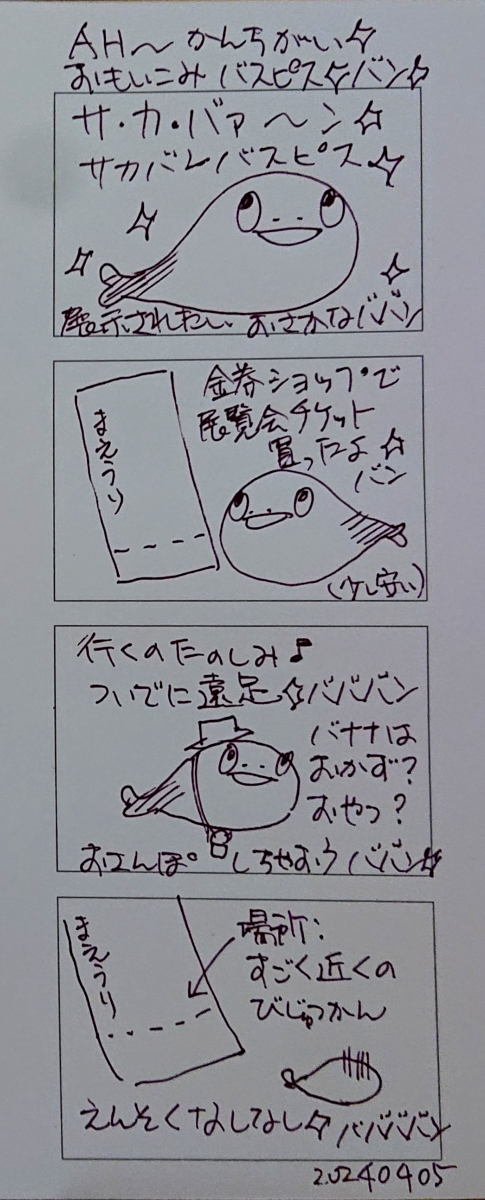 AH〜かんちがい☆
おもいこみ バスピス☆バン☆
サ・カ・バァ〜ン☆
サカバンバスピス☆
展示されたい おさかなババン
金券ショップで
展覧会チケット
買ったよ☆
バン
まえうり
(少し安い)
行くのたのしみ♪
ついでに遠足☆バババン
バナナは
おかず?
おやつ?
おさんぽ しちゃおう ババン☆
まえうり
場所:
すごく近くの
びじゅつかん
えんそくなしでなし☆ バババババン
20240405